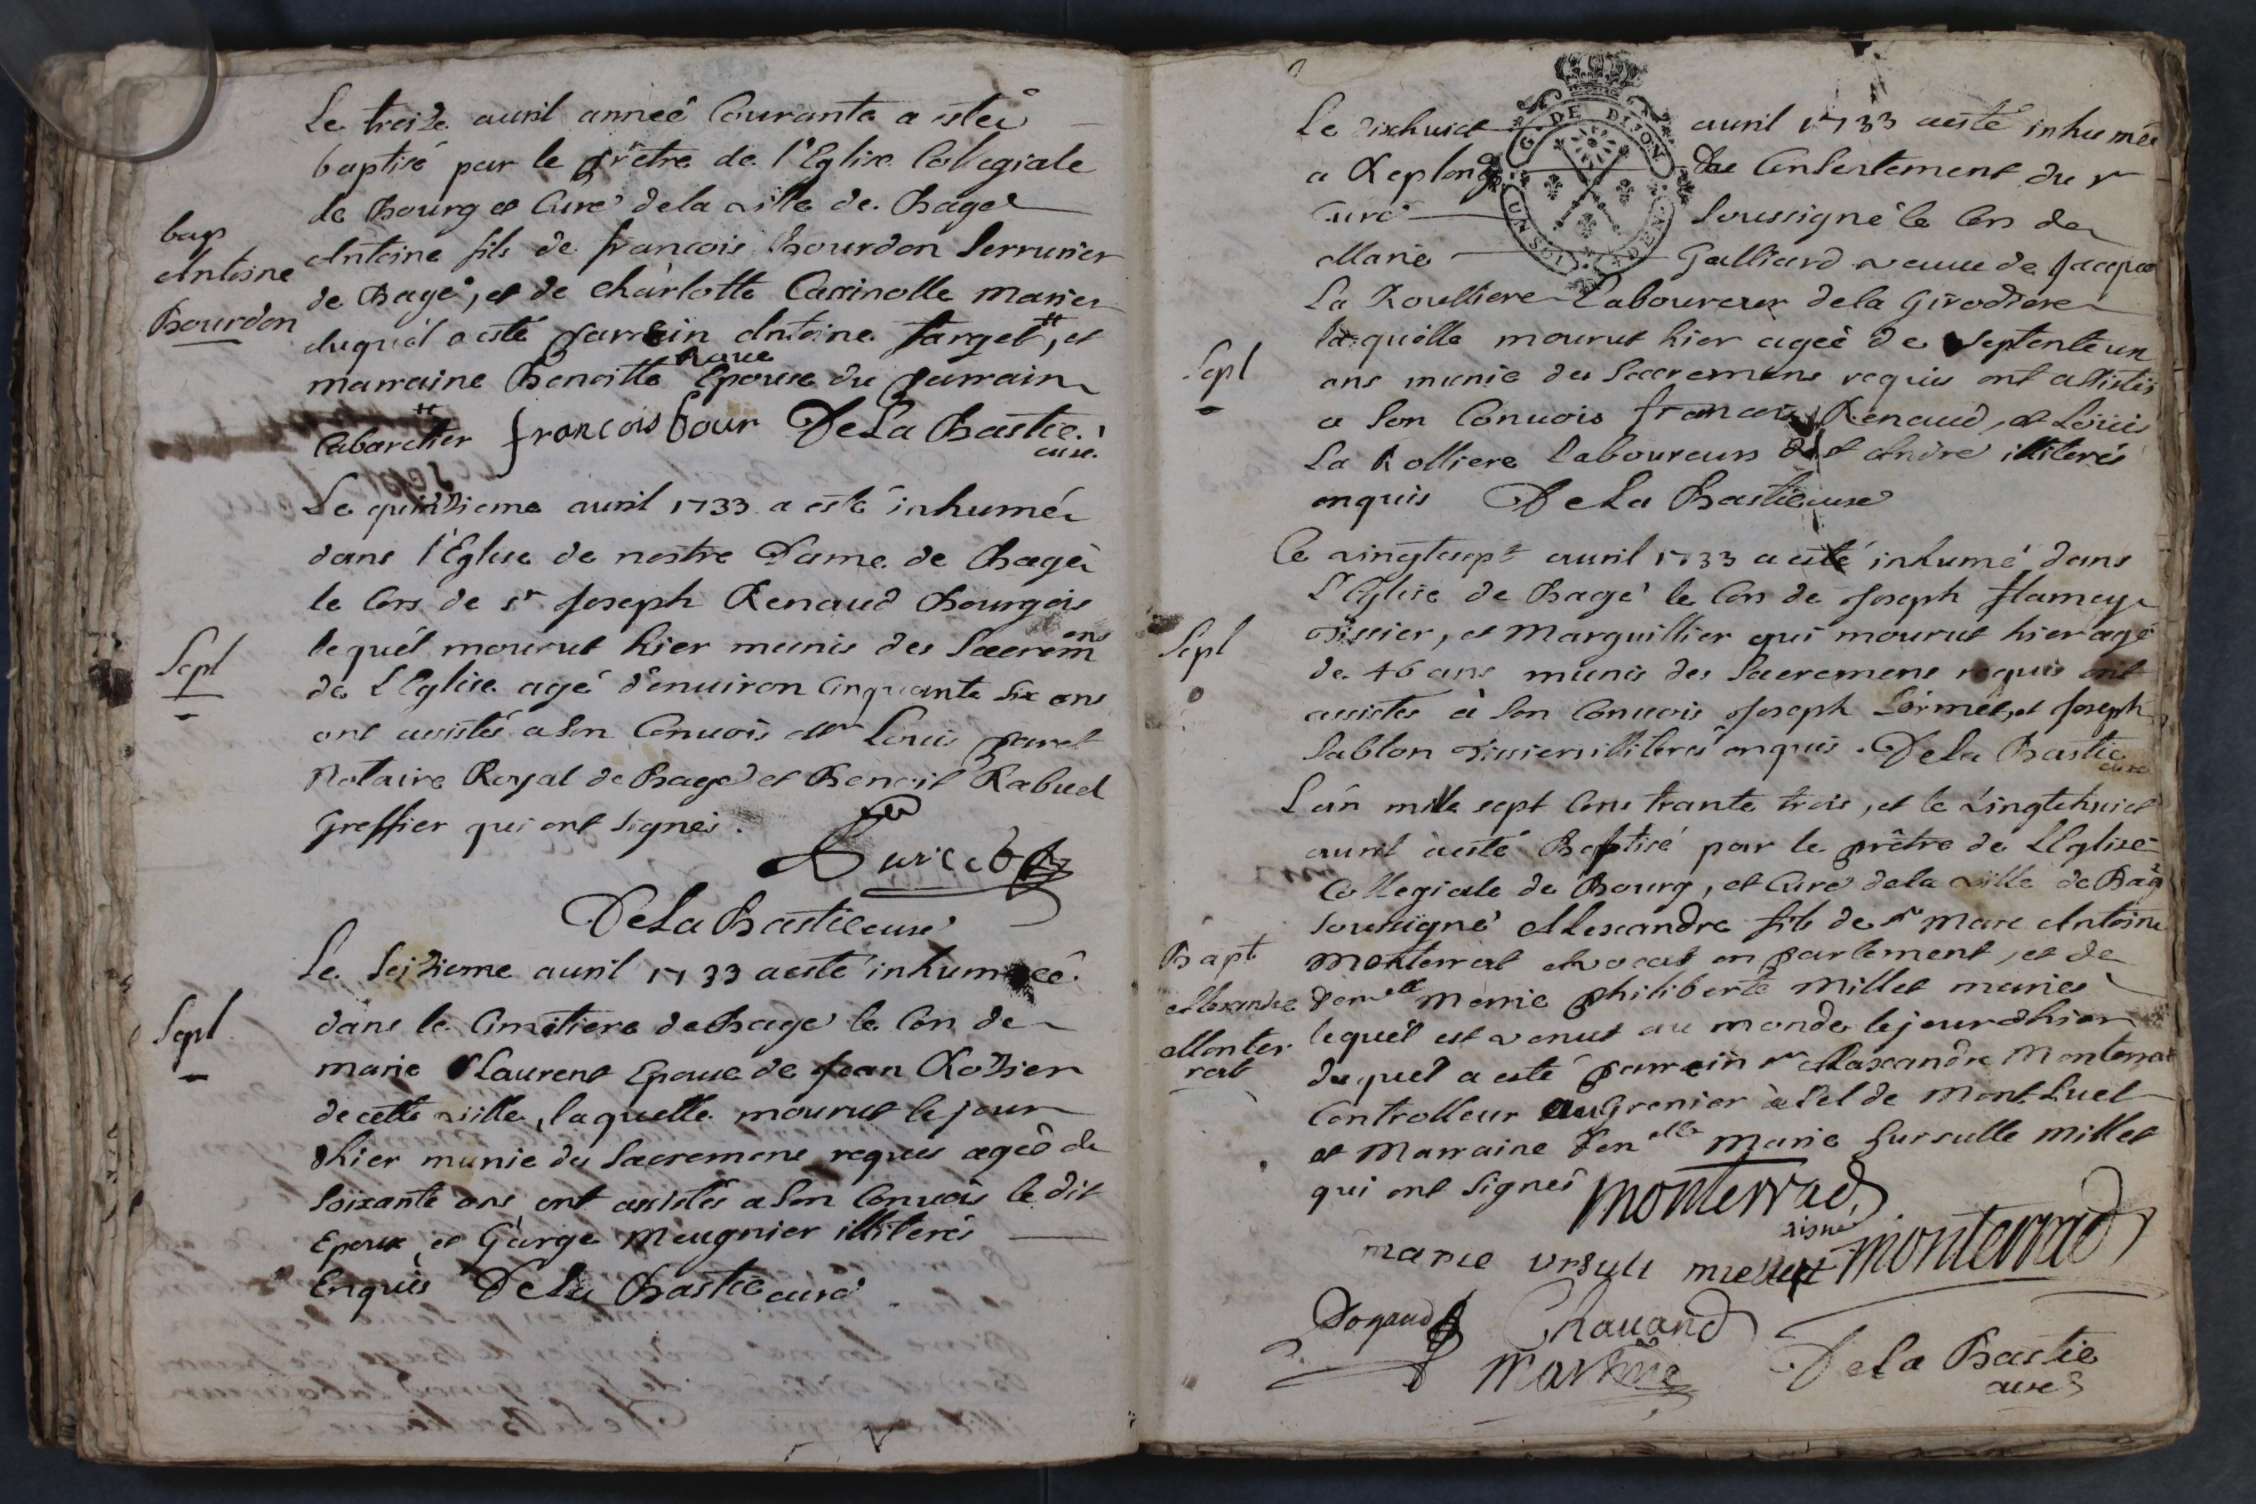 Le treize auril anneé Courante a esteé
baptisé par le prêtre de l'Eglise Colegiale
de Bourg et Curé de la ville de Bagé
bap
Antoine
Bourdon
Antoine fils de francois Bourdon Serrurier
de Bagé, et de charlotte Carrinolle mariés
duquel a esté parrain Antoine farget, et
marraine Benoitte Epouse du parrain
Cabarettier francois bour De La Bastie
curé
Le quinzieme auril 1733 a esté inhumé
dans l'Eglise de nostre Dame de Bagé
le Cors de sr Joseph Renaud Bourgois
Sepl
lequél mourut hier munis des Sacremens
de L'Eglise agé d'enuiron Cinquante Six ans
ont assistés a son Conuois Mr Louis paret
Notaire Royal de Bagé et Benoit Rabuel
Greffier qui ont signés.
De La Bastie curé
Le Seizieme auril 1733 a esté inhumeé
Sepl
dans le Cimetiere de Bagé le Cors de
marie Laurent Epouse de Jean Rozier
de cette ville, laquelle mourut le jour
dhier munie des Sacremens requis ageé de
soixante ans ont assistés a son Conuois le dit
Epoux et George Meugnier illiterés
Enquis De La Bastie curé
Le dixhuict auril 1733 a esté inhumeé
a Replonge du Consentement du sr
curé soussigné le Cors de
Marie Galliard veuue de Jacques
La Roulliere Laboureur de la Girodiere
laquelle mourut hier ageé de septente un
Sepl
ans munie des Sacremens requis ont assistés
a son Conuois francois Renaud, et Loüis
La Rolliere Laboureurs de st André illiterés
enquis De La Bastie curé
Le vingtsept auril 1733 a esté inhumé dans
L'Eglise de Bagé le Cors de Joseph flamey
Sepl
Tissier, et Marguillier qui mourut hier agé
de 46 ans munis des Sacremens requis ont
assistés à son Conuois Joseph Lormet, et Joseph
Sablon Tissiers illiterés enquis. De La Bastie
curé
L'an mile sept Cens trante trois, et le vingthuict
auril a esté Baptisé par le prêtre de L'Eglise
Collegiale de Bourg, et Curé de la ville de Bagé
soussigné Alexandre fils de sr Marc Antoine
Bapt
Alexandre
Monter
rat
Monterrat Avocat en parlement, et de
Demelle Marie philiberte Millet mariés
lequel est venut au monde le jour dhier
duquel a esté parrein sr Alexandre Monterrat
Controlleur au Grenier à Sel de Montluel
et Marraine Denelle Marie Sursulle Millet
qui ont signés monterrad
aisné
marie ursule millet monterrad
Chauand
De La Bastie
curé